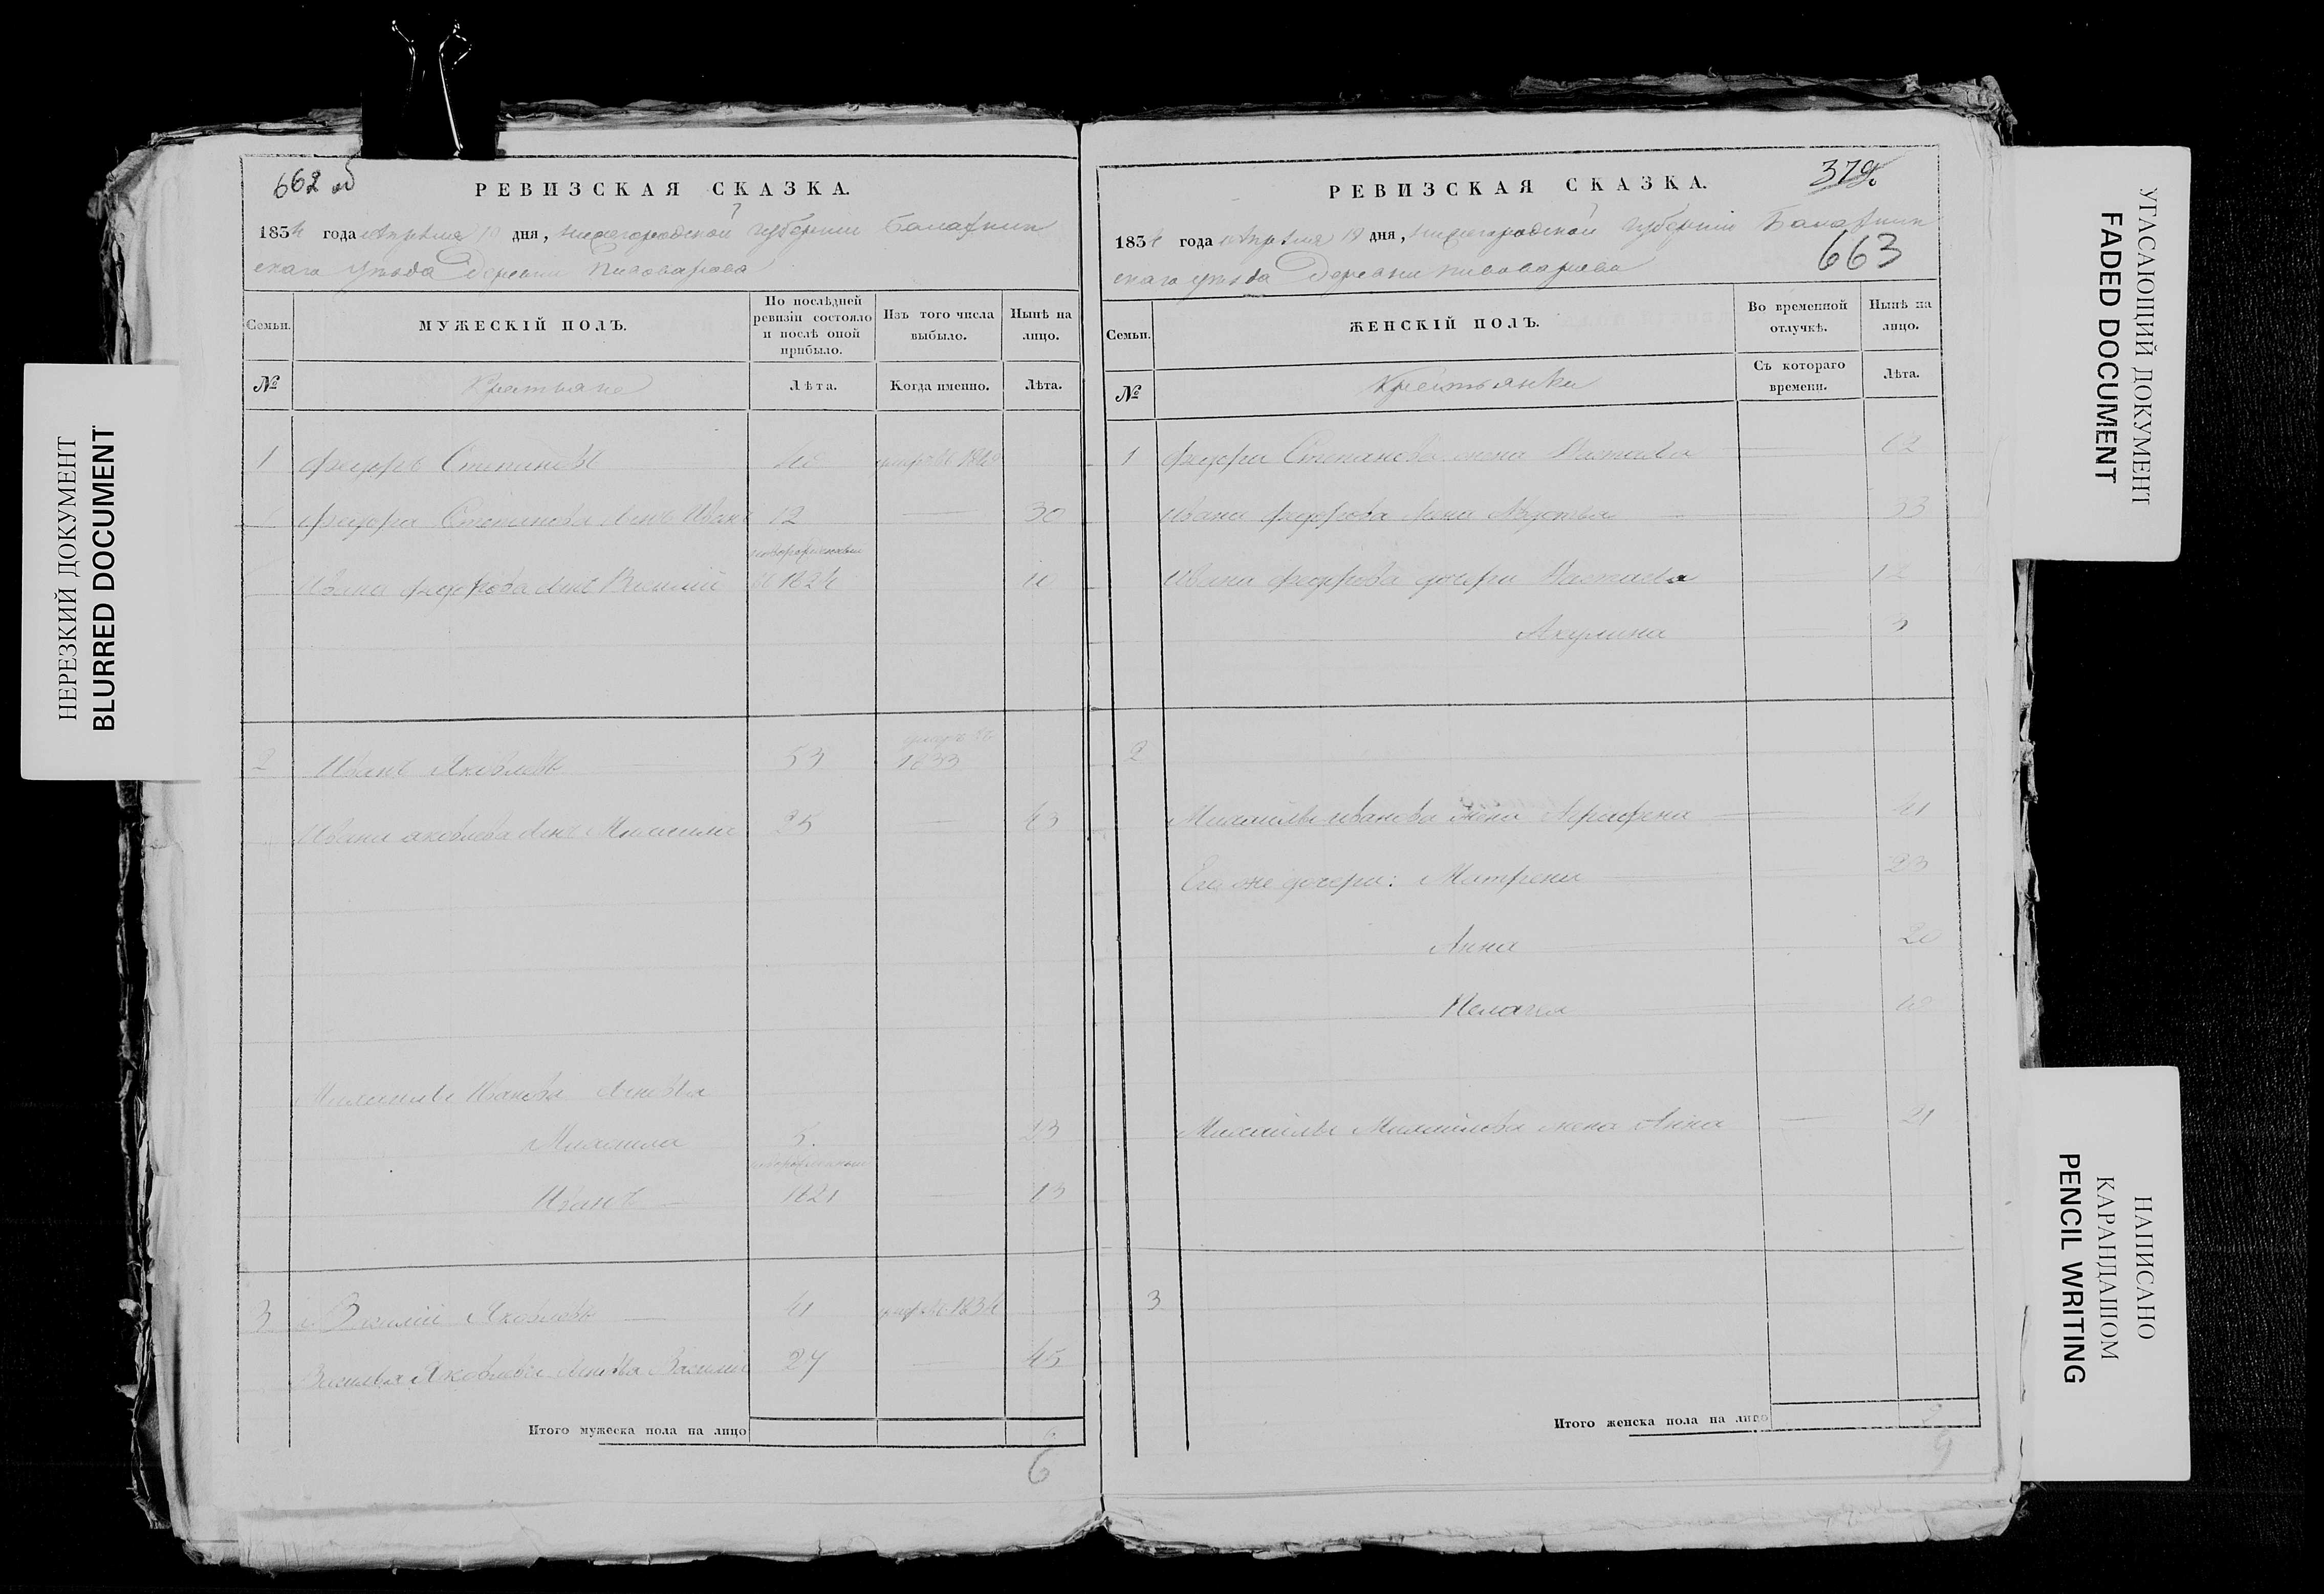 НЕРЕЗКИЙ ДОКУМЕНТ
BLURRED DOCUMENT
662 об
РЕВИЗСКАЯ СКАЗКА.
1834 года Апреля 19 дня, Нижегородской Губернии Балахнин
скаго уезда Деревни Пивоварова
Семьи. МУЖЕСКІЙ ПОЛЪ. По послѣдней ревизіи состояло и послѣ оной прибыло. Изъ того числа выбыло. Нынѣ на лицо.
№ Крестьяне Лѣта. Когда именно. Лѣта.
1 Федоръ Степановъ
Федора Степанова сынъ Иванъ 12 — 30
новорожденный
Ивана Федорова сынъ Василий въ 1824 10
2 Иванъ Яковлевъ 53 1833
Ивана Яковлева сынъ Михаила 25 — 43
Михаила Иванова сыновья
Михаила 5. 23
новорожденный
Иванъ — 1821 — 13
3 Василий Яковлевъ — 41 1834
Василья Яковлева сыновья Василий 27 — 45
Итого мужеска пола на лицо 6
6
379
РЕВИЗСКАЯ СКАЗКА.
1834 года Апреля 19 дня, Нижегородской Губернии Балахнин
663
скаго уезда Деревни Пивоварова
Семьи. ЖЕНСКІЙ ПОЛЪ. Во временной отлучкѣ. Нынѣ на лицо.
№ Крестьянки Съ котораго времени. Лѣта.
1 Федора Степанова жена Настасья — 62
Ивана Федорова жена Авдотья — 33
Ивана Федорова дочери Настасья 12
Акулина 3
2
Михаилы Иванова жена Аграфена — 41
Его же дочери: Матрена 23
Анна 20
Пелагея
Михаилы Михайлова жена Анна — 21
3
Итого женска пола на лицо 9
9
УГАСАЮЩИЙ ДОКУМЕНТ
FADED DOCUMENT
НАПИСАНО
КАРАНДАШОМ
PENCIL WRITING